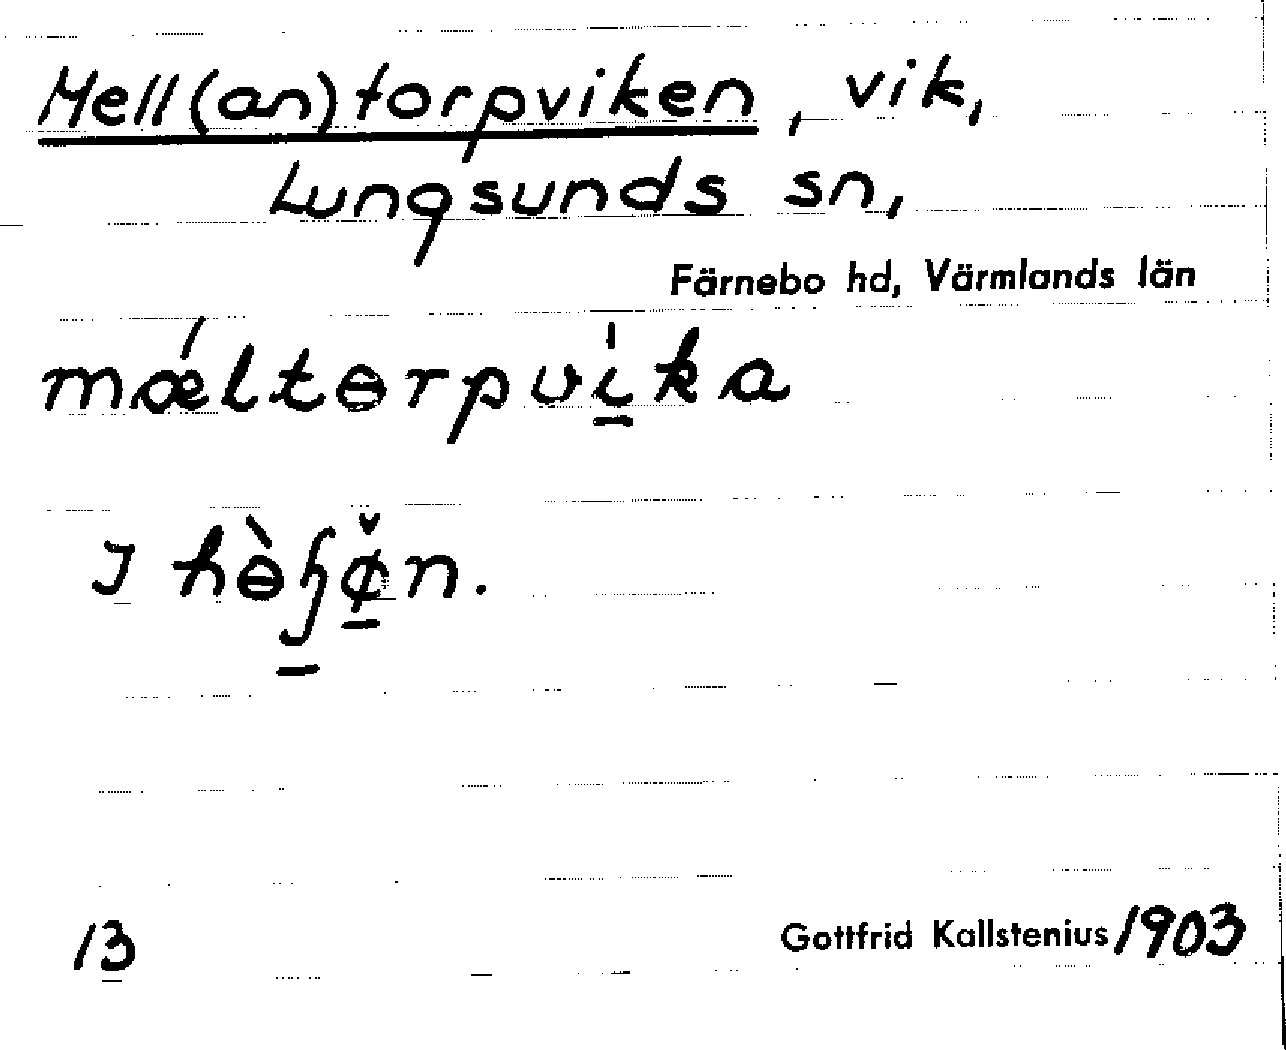 Mell(an)torpviken, vik,
Lungsunds sn,
Färnebo hd, Värmlands län
mǽltɵrpvi̱̍ka
I hɵ̀ɧø̱̌n.
13
Gottfrid Kallstenius 1903